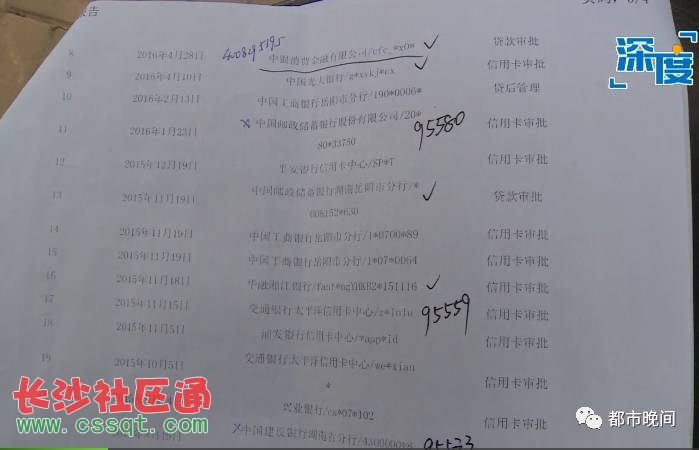 报告
8 2016年4月28日 4008295195 中银消费金融有限公司/cfc_*x0* 贷款审批
9 2016年4月10日 中国光大银行/g*xykj*cx 信用卡审批
10 2016年2月13日 中国工商银行岳阳市分行/190*0006* 贷后管理
11 2016年1月23日 中国邮政储蓄银行股份有限公司/20* 95580 信用卡审批
80*33750
12 2015年12月19日 平安银行信用卡中心/SP*T 信用卡审批
13 2015年11月19日 中国邮政储蓄银行湖南岳阳市分行/* 贷款审批
006152*630
14 2015年11月19日 中国工商银行岳阳市分行/1*0700*89 信用卡审批
15 2015年11月19日 中国工商银行岳阳市分行/1*07*0064 信用卡审批
16 2015年11月18日 华融湘江银行 信用卡审批
17 2015年11月15日 交通银行太平洋信用卡中心 95559 信用卡审批
18 2015年11月5日 浦发银行信用卡中心/*app*id 信用卡审批
19 2015年10月5日 交通银行太平洋信用卡中心/we*xian 信用卡审批
*
兴业银行/cx*07*102 信用卡审批
中国建设银行湖南省分行/4300000*8 95533 信用卡审批
深度
长沙社区通
www.cssqt.com
都市晚间